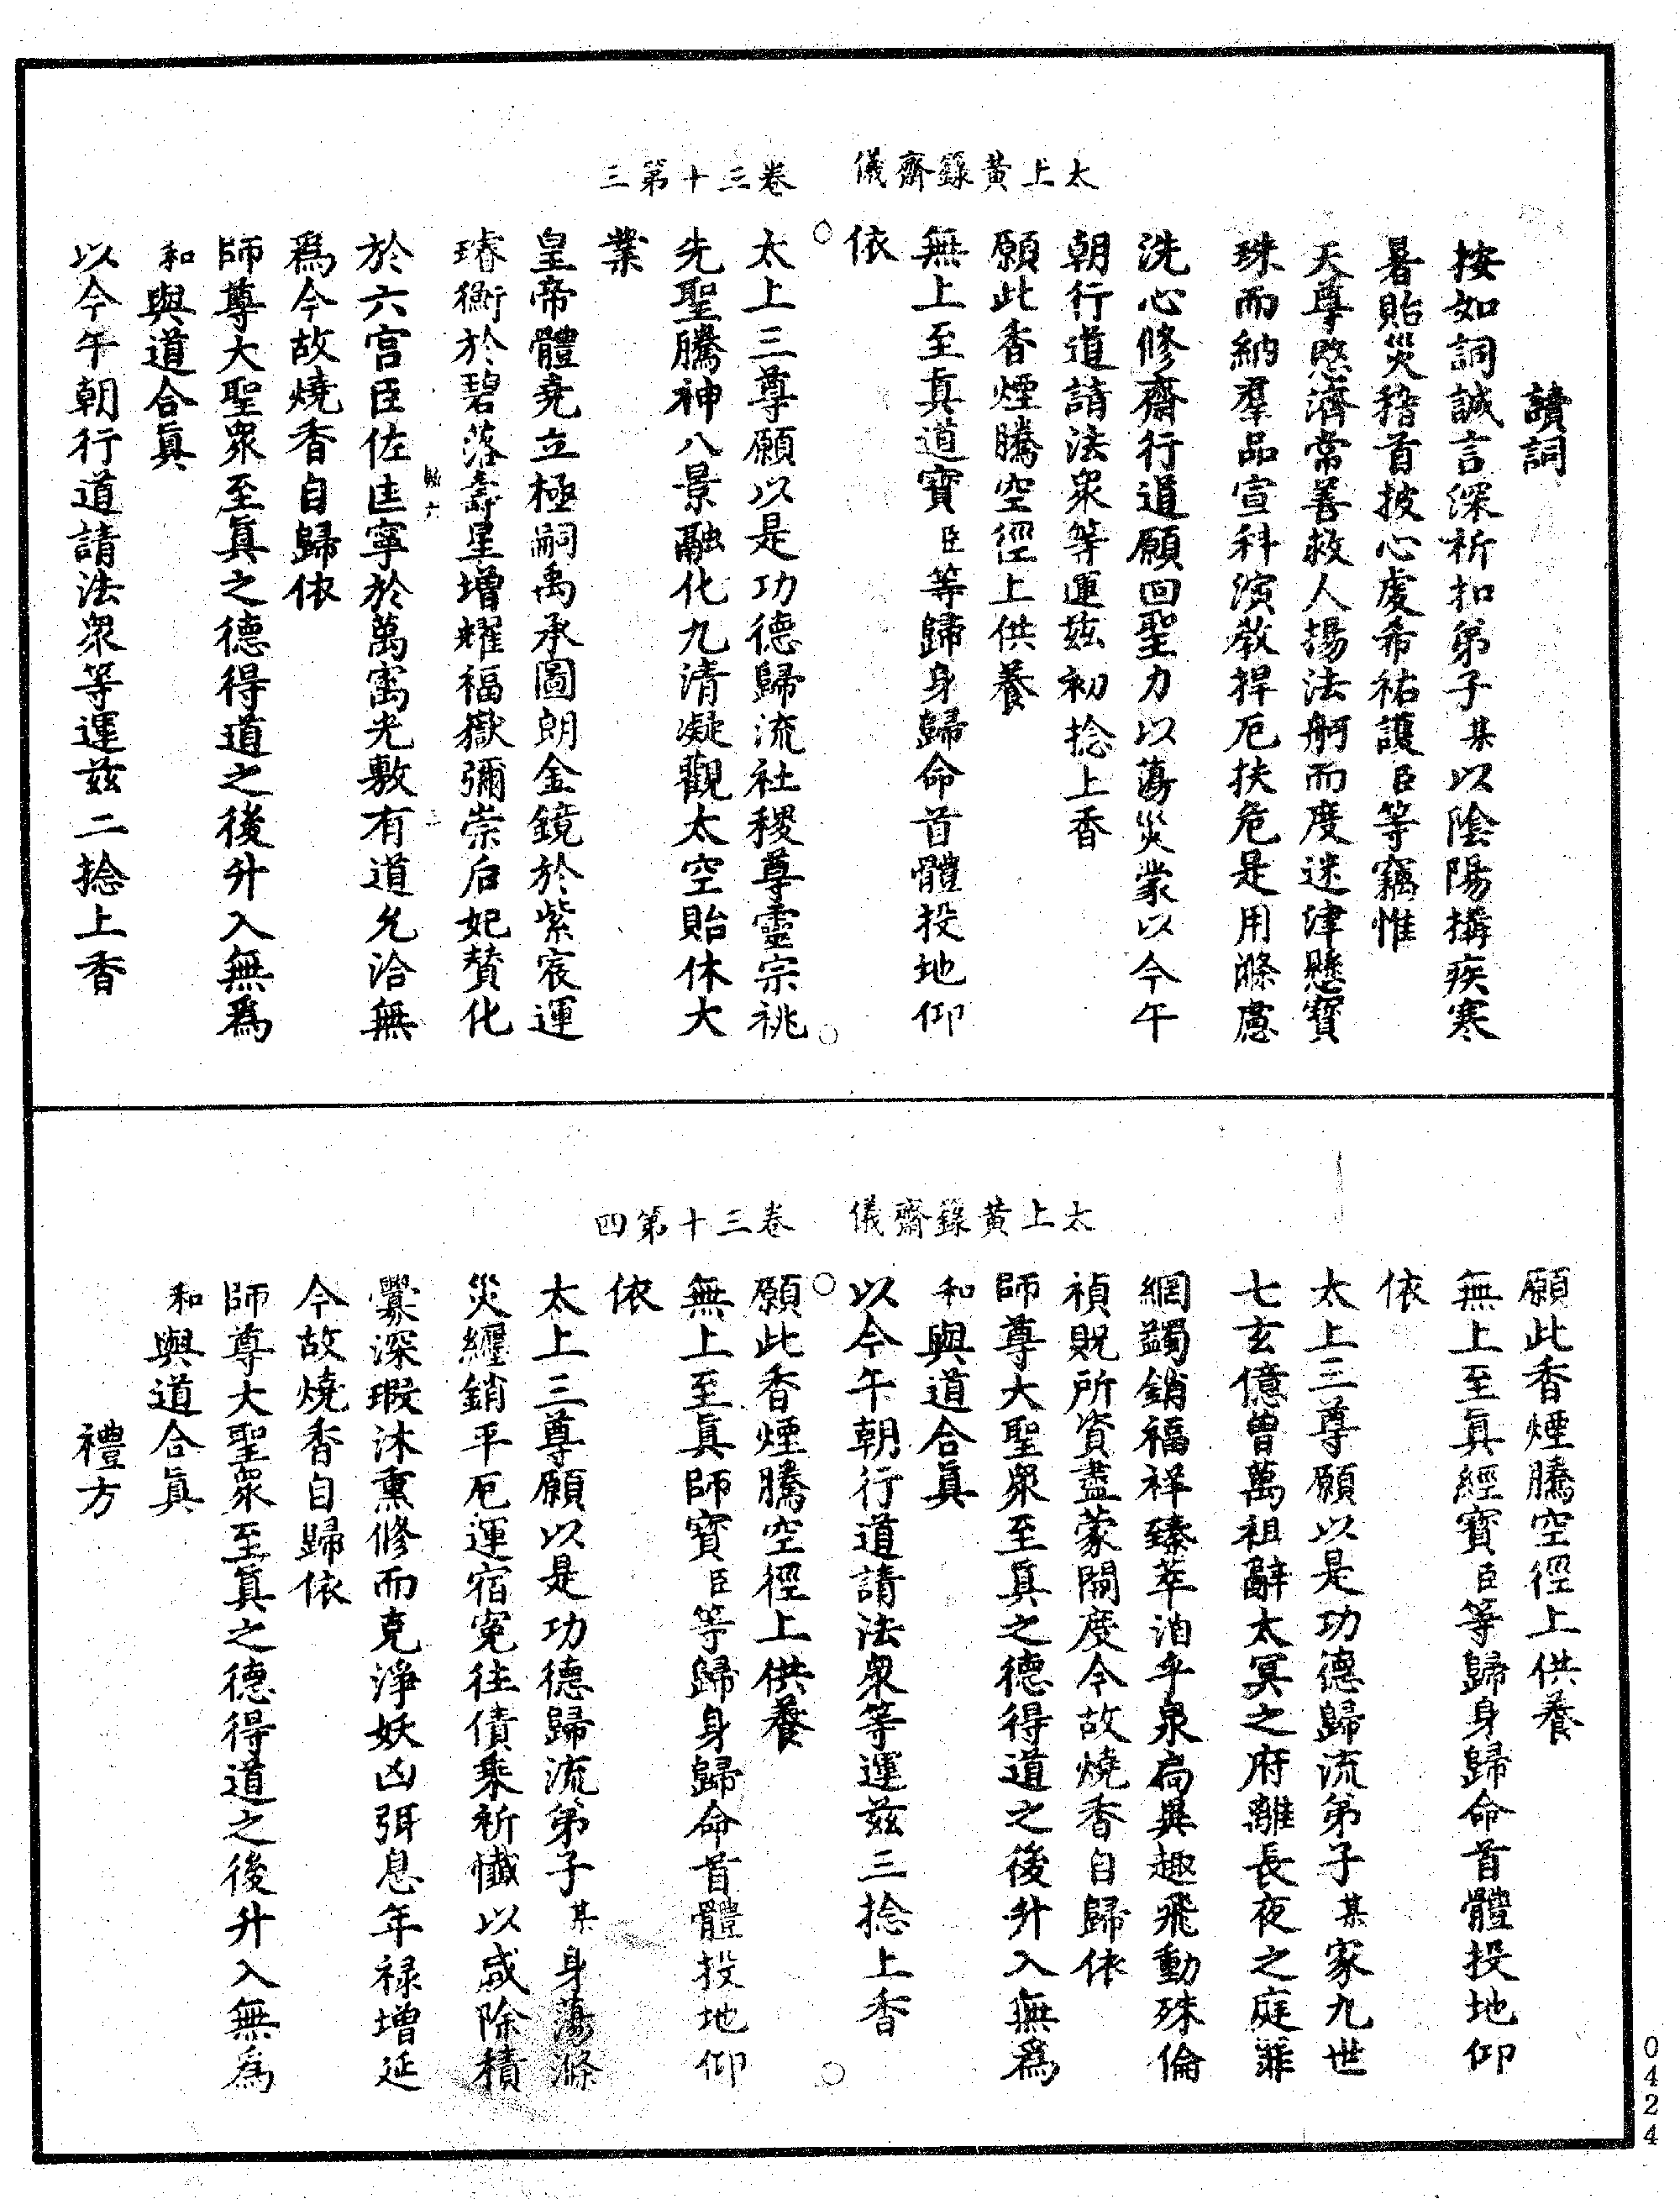 太上黃籙齋儀　卷三十第三
讀詞
按如詞誠言深祈扣弟子某以陰陽搆疾寒
暑貽災稽首披心虔希祐護臣等竊惟
天尊愍濟常善救人揚法舸而度迷津懸寶
珠而納羣品宣科演敎捍厄扶危是用滌慮
洗心修齋行道願回聖力以蕩災蒙以今午
朝行道請法衆等運茲初捻上香
願此香煙騰空徑上供養
無上至真道寶臣等歸身歸命首體投地仰
依
太上三尊願以是功德歸流社稷尊靈宗祧
先聖騰神八景融化九清凝觀太空貽休大
業
皇帝體堯立極嗣禹承圖朗金鏡於紫宸運
璿衡於碧落壽星增耀福嶽彌崇后妃賛化
於六宮臣佐匡寧於萬㝢光敷有道允洽無
爲今故燒香自歸依
師尊大聖衆至真之德得道之後升入無爲
和與道合真
以今午朝行道請法衆等運茲二捻上香
太上黃籙齋儀　卷三十第四
願此香煙騰空徑上供養
無上至真經寶臣等歸身歸命首體投地仰
依
太上三尊願以是功德歸流弟子某家九世
七玄億曾萬祖辭太冥之府離長夜之庭罪
網蠲銷福祥臻萃洎乎泉扃異趣飛動殊倫
禎貺所資盡蒙開度今故燒香自歸依
師尊大聖衆至真之德得道之後升入無爲
和與道合真
以今午朝行道請法衆等運茲三捻上香
願此香煙騰空徑上供養
無上至真師寶臣等歸身歸命首體投地仰
依
太上三尊願以是功德歸流弟子某身蕩滌
災纏銷平厄運宿寃往債乘祈懺以咸除積
釁深瑕沐熏修而克淨妖凶弭息年祿增延
今故燒香自歸依
師尊大聖衆至真之德得道之後升入無爲
和與道合真
禮方
0424